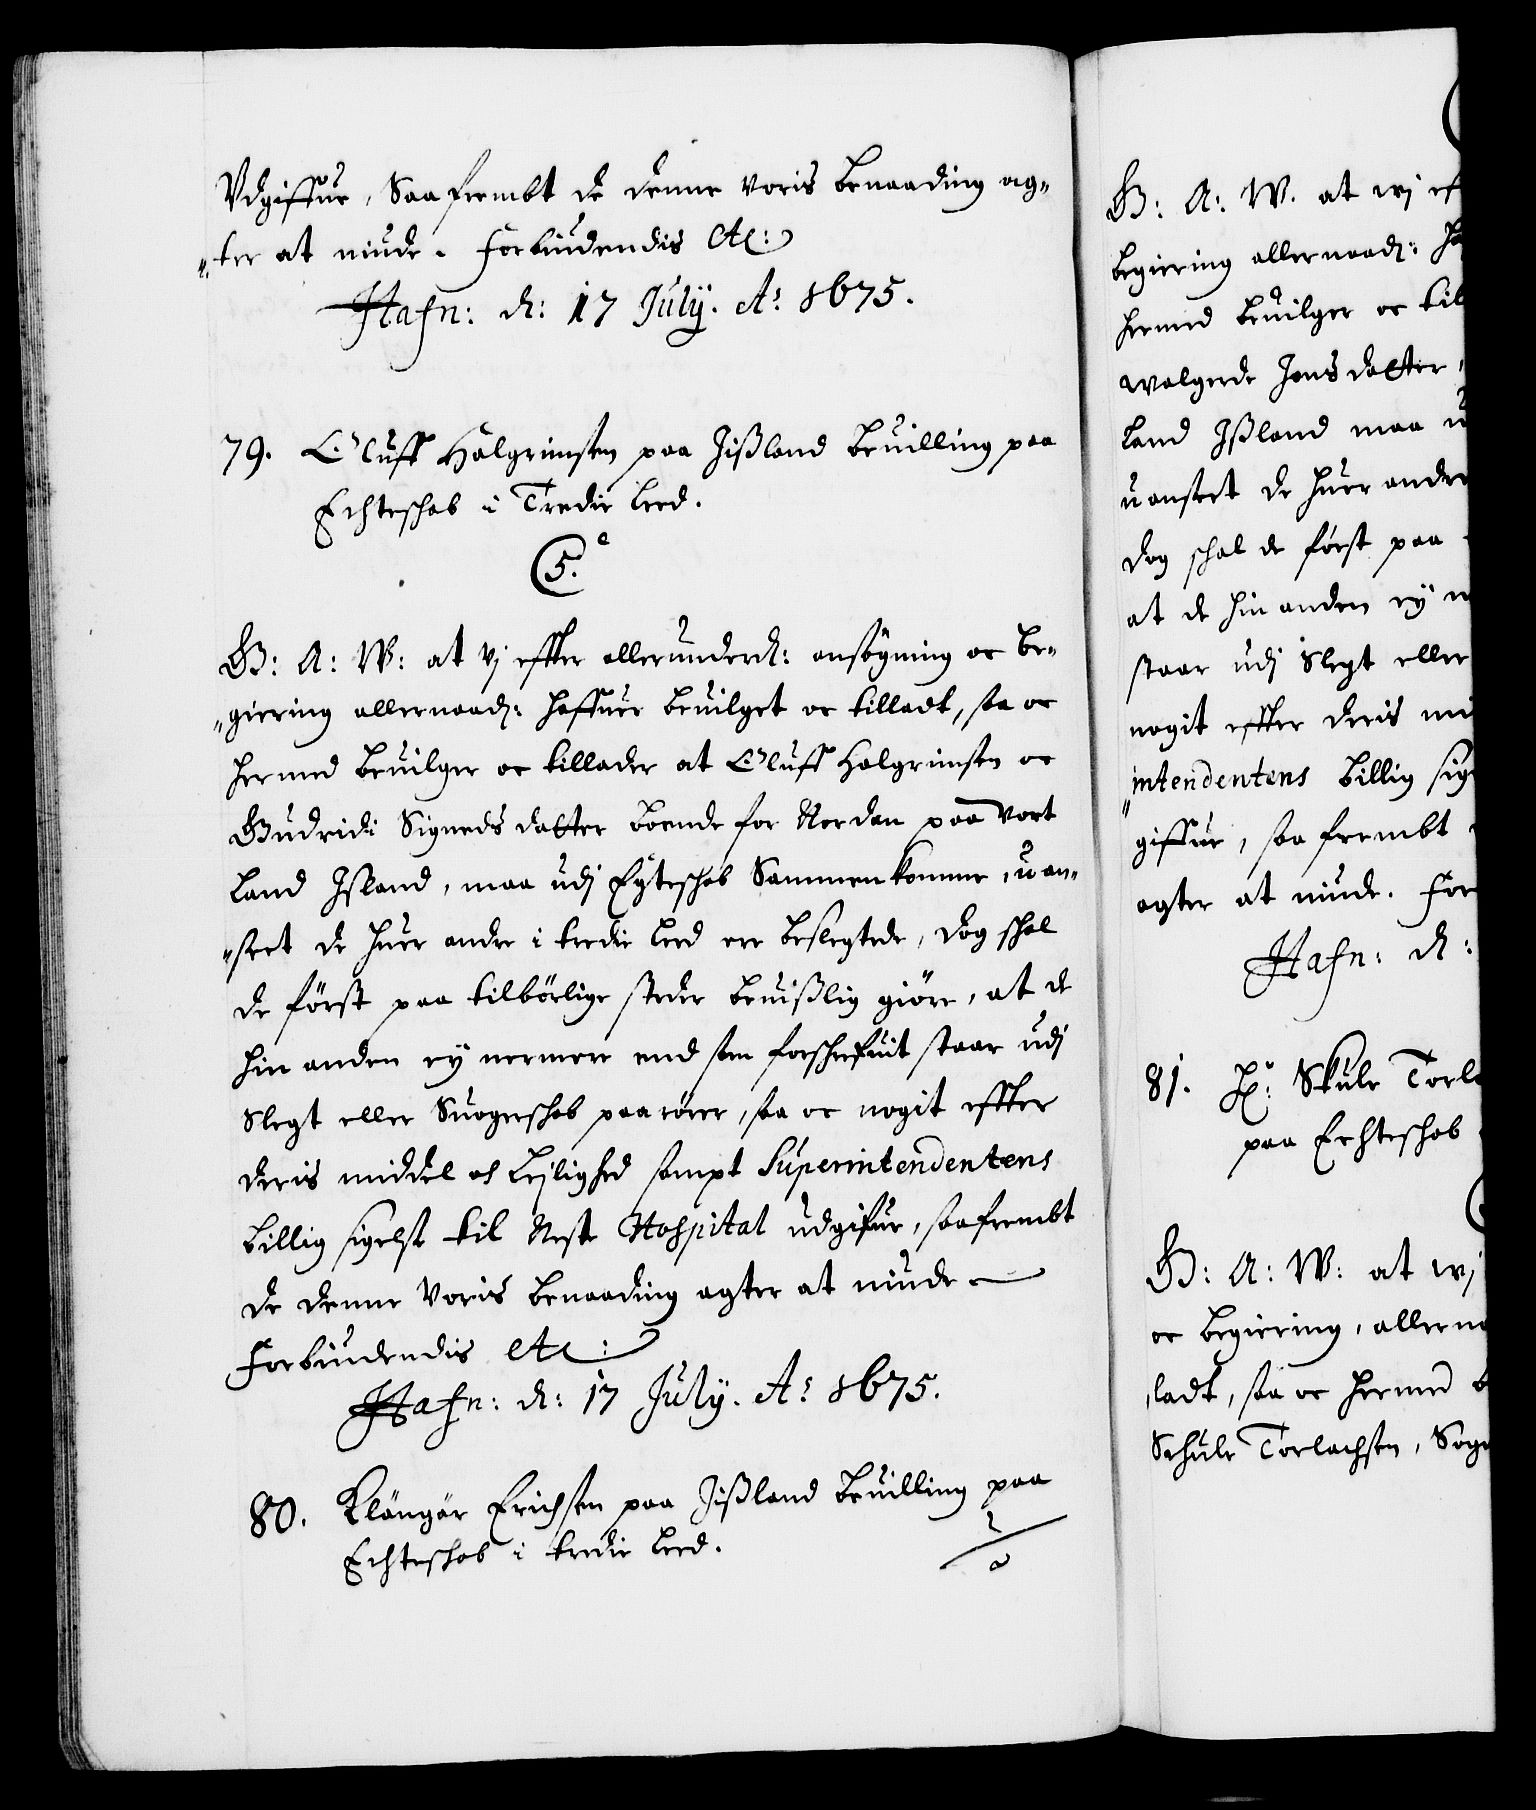 Vdgiffue, Saafrembt de denne voris benaading ag„
„ter at niude. Forbiudendis etc:
Hafn: d: 17 July. Aº 1675.
79. Oluff Halgrimsen paa Jißland beuilling paa
Echteschab i Tredie leed.
C5.
G: A: W: at vj effter allerunderd: ansögning oc be„
„giering allernaad: haffuer beuilget oc tilladt, saa oc
hermed beuilger oc tillader at Oluff Halgrimsen oc
Gudridi Signeds datter boende for Norden paa vort
land Island, maa udj Egteschab Sammenkomme, uan„
„seet de huer andre i tredie leed ere beslegtede, dog schal
de först paa tilbörlige steder beuißlig giöre, at de
hin anden ey nermere end som forschrefuit staar udj
Slegt eller Suogerschab paarörer, saa oc nogit effter
deris middel oc lejlighed sampt Superintendentens
billig sigelse til Neste Hospital udgifue, saafrembt
de denne Voris benaading agter at niude
Forbiudendis etc:
Hafn: d: 17 July. Aº 1675.
80. Klängär Erichsen paa Jißland beuilling paa
Echteschab i tredie leed.
G: A: W. at wj ef
begiering allernaad: ha
hermed beuilger oc til
Walgerde Jons datter,
land Ißland maa u
uanseet de huer andre
dog schal de först paa
at de hin anden ey n
staar udj Slegt eller
nogit effter deris mi
„intendentens billig sig
giffue, saa frembt
agter at niude. For
Hafn: d:
81. Hr: Skule Torla
paa Echteschab
G: A: W: at wj
oc begiering, allerna
ladt, saa oc hermed b
Schule Torlachsen, Sogn